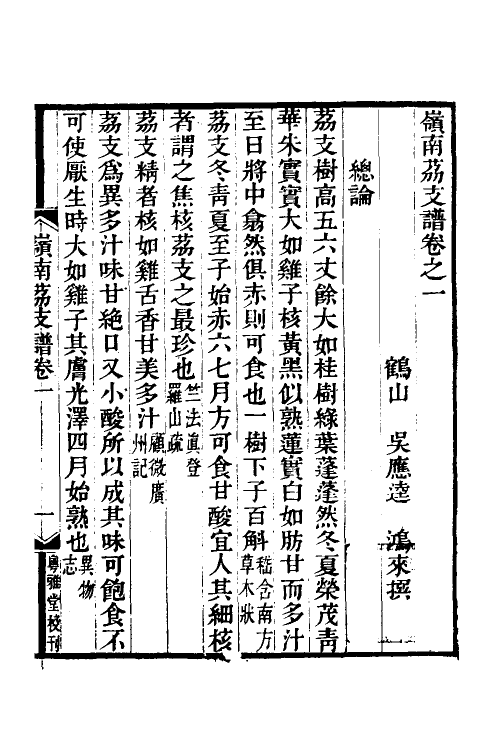 嶺南荔支譜卷之一
鶴山　吳應逵　鴻來撰
總論
荔支樹高五六丈餘大如桂樹綠葉蓬蓬然冬夏榮茂青
華朱實實大如雞子核黃黑似熟蓮實白如肪甘而多汁
至日將中翕然俱赤則可食也一樹下子百斛嵇含南方草木狀
荔支冬青夏至子始赤六七月方可食甘酸宜人其細核
者謂之焦核荔支之最珍也竺法真登羅山疏
荔支精者核如雞舌香甘美多汁顧微廣州記
荔支爲異多汁味甘絕口又小酸所以成其味可飽食不
可使厭生時大如雞子其膚光澤四月始熟也異物志
嶺南荔支譜卷一　一　粵雅堂校刊